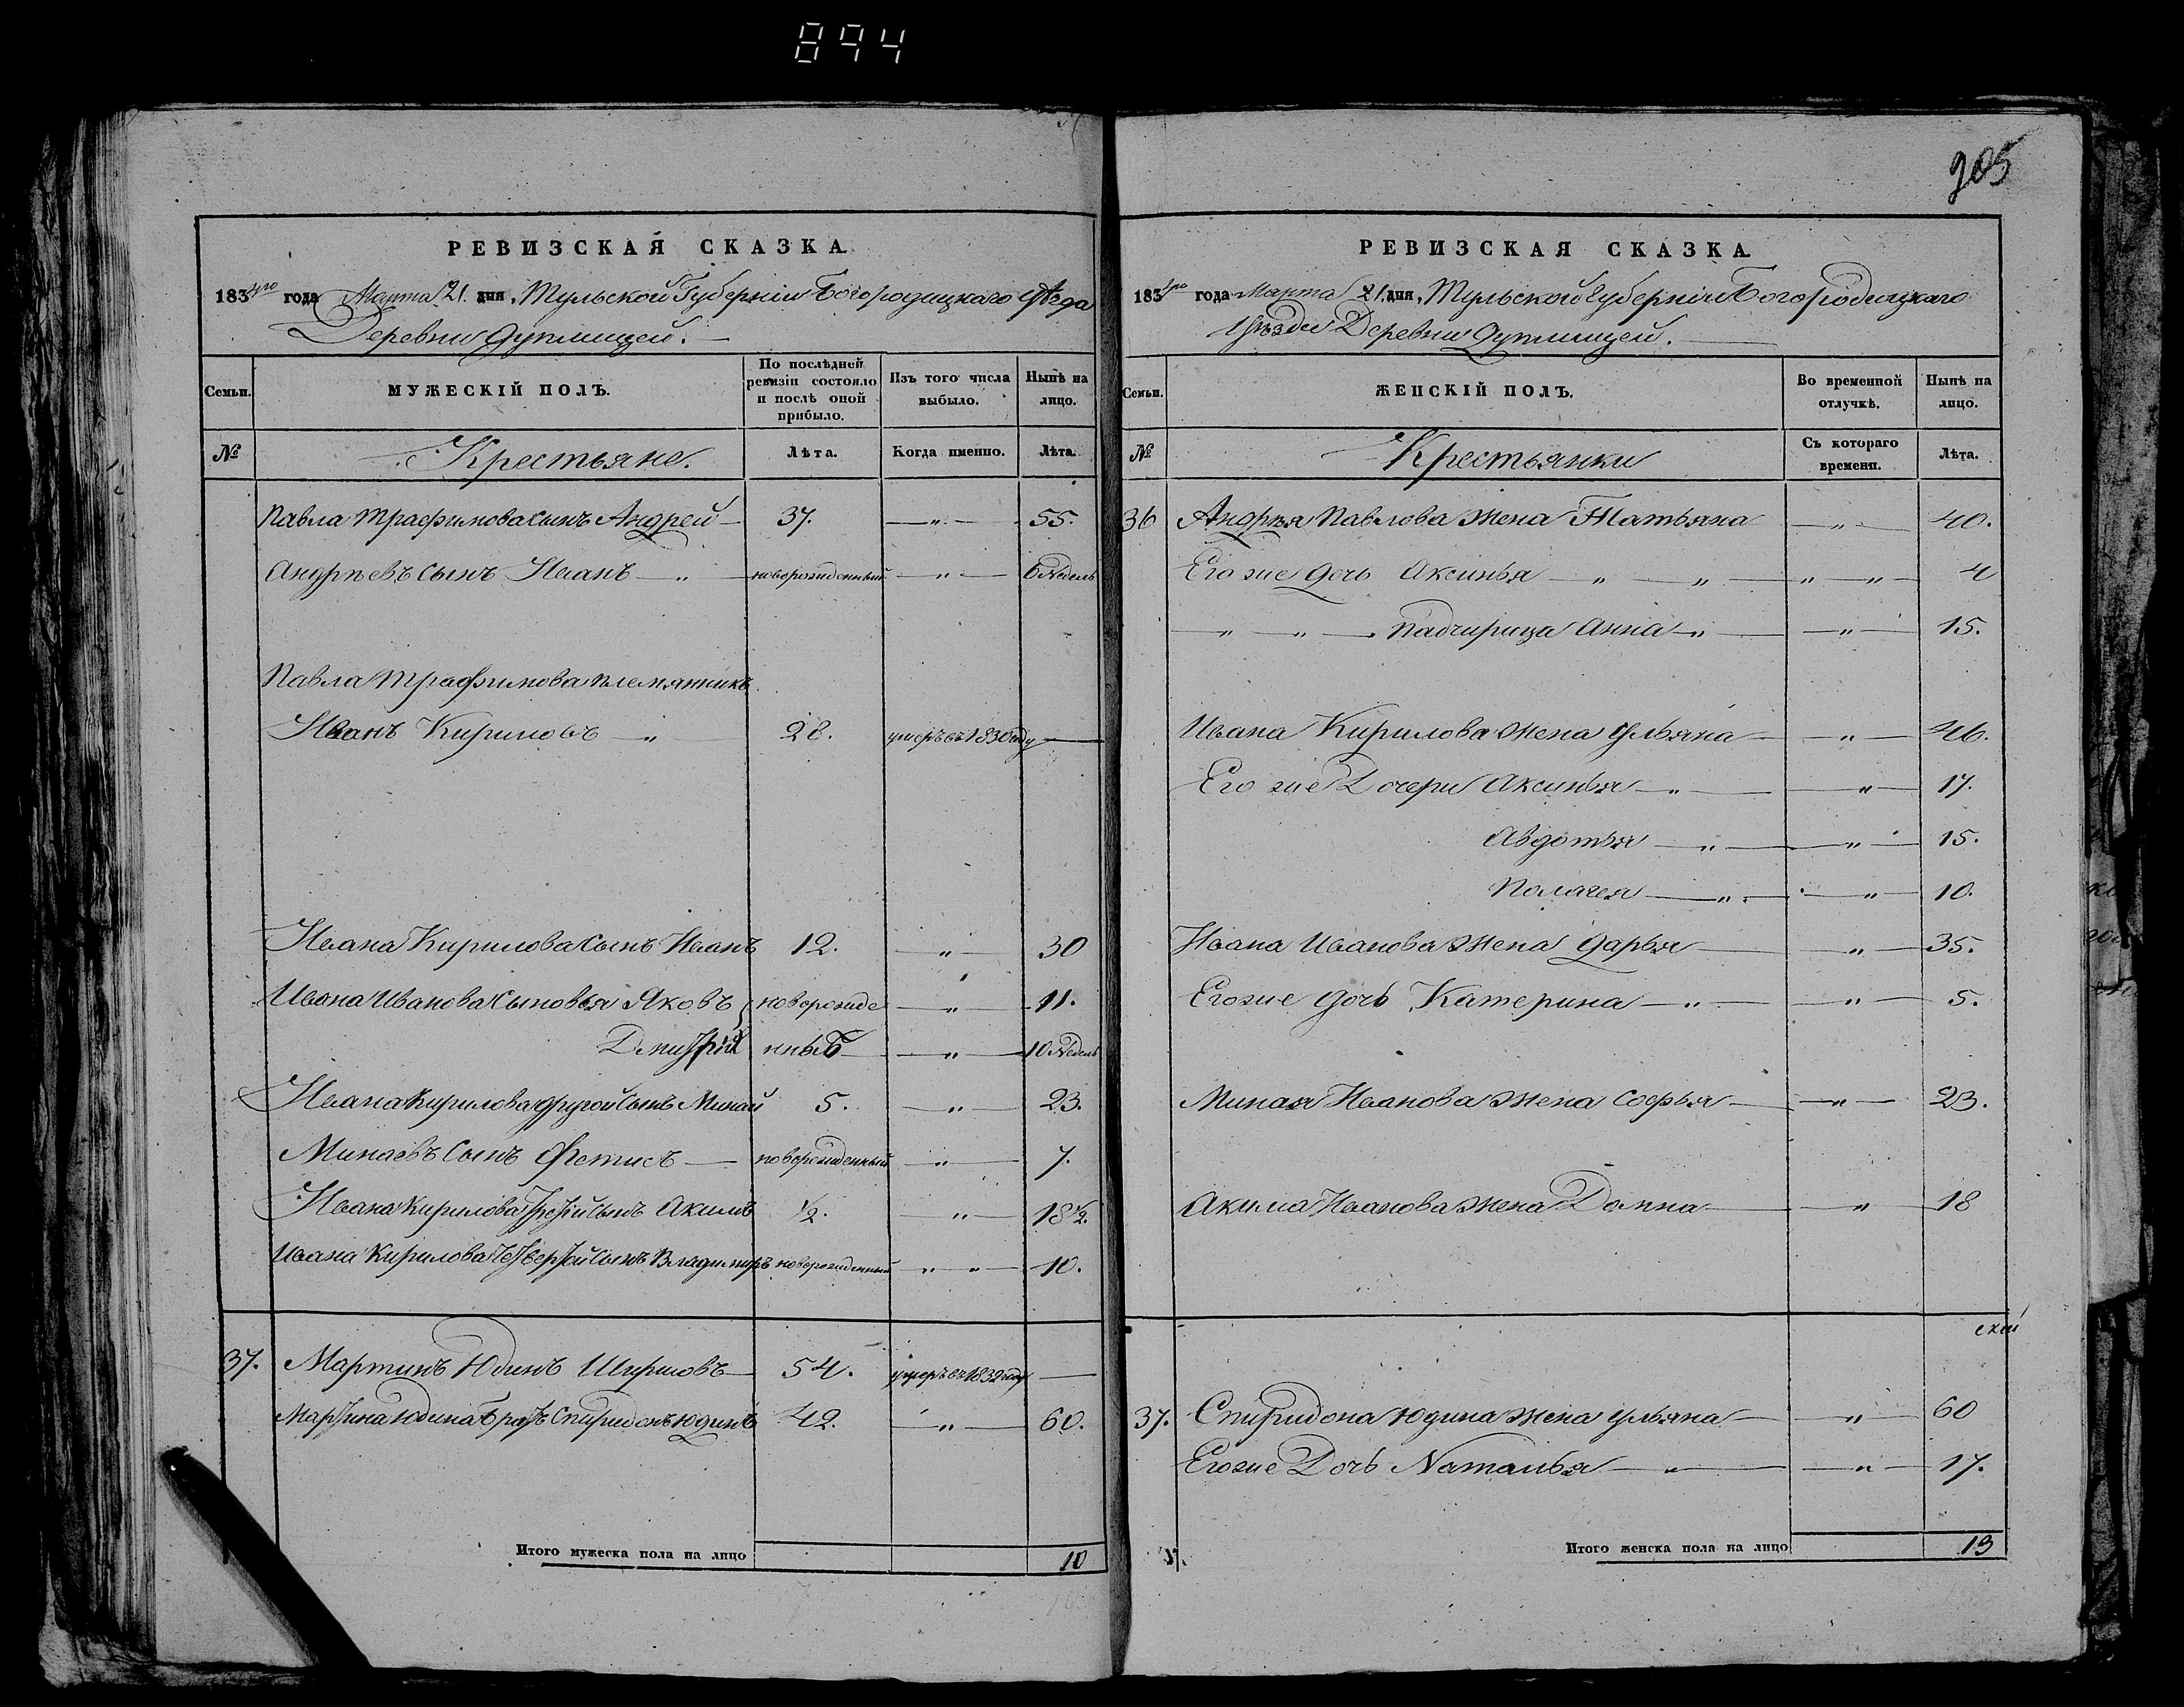 894
205
РЕВИЗСКАЯ СКАЗКА
1834го года Марта 21. дня. Тульской Губерніи Богородицкаго уѣзда
Деревни
МУЖЕСКІЙ ПОЛЪ.
Семьи.
По послѣдней ревизіи состояло и послѣ оной прибыло.
Изъ того числа выбыло.
Нынѣ на лицо.
№ Крестьяне. Лѣта. Когда именно. Лѣта.
Павла Трафимова сынъ Андрей 37. — „ — 55.
Андрѣевъ сынъ Иванъ — „ — новорожденный — „ — 6 Недель
Павла Трафимова племянникъ
Иванъ Кириловъ — „ 28. умеръ въ 1830 году —
Ивана Кирилова сынъ Иванъ 12. „ 30
Ивана Иванова сыновья Яковъ новорожде — „ — 11.
Дмитрій нный — „ — 10 Недель
Ивана Кирилова другой сынъ Минай 5. — „ — 23.
Минаевъ сынъ Фетисъ — новорожденный — „ — 7.
Ивана Кирилова третій сынъ Акимъ ½. — „ — 18½.
Ивана Кирилова четвертой сынъ Владимиръ новорожденный „ „ 10.
37. Мартинъ Юдинъ 54. умеръ въ 1832 году —
Мартина Юдина братъ Спиридонъ Юдинъ 42. — „ — 60.
Итого мужеска пола на лицо 10
РЕВИЗСКАЯ СКАЗКА
1834го года Марта 21. дня. Тульской Губерніи Богородицкаго
Уѣзда Деревни
Семьи.
ЖЕНСКІЙ ПОЛЪ.
Во временной отлучкѣ.
Нынѣ на лицо.
№ Крестьянки Съ котораго времени. Лѣта.
36 Андрѣя Павлова жена Татьяна — „ — 40.
Его же дочь Аксинья — „ — „ — „ — „ — 4
— „ — „ — Падчирица Анна — „ — — „ — 15.
Ивана Кирилова жена Ульяна — „ — 46.
Его же Дочери Аксинья — „ — — „ — 17.
Авдотья — „ — — „ — 15.
Палагея — „ — — „ — 10.
Ивана Иванова жена Дарья — „ — 35.
Его же дочь Катерина — „ — — „ — 5.
Миная Иванова жена Софья — „ — 23.
Акима Иванова жена Домна — „ — 18
37. Спиридона Юдина жена Ульяна — „ — 60
Его же Дочь Наталья — „ — — „ — 17.
Итого женска пола на лицо 13